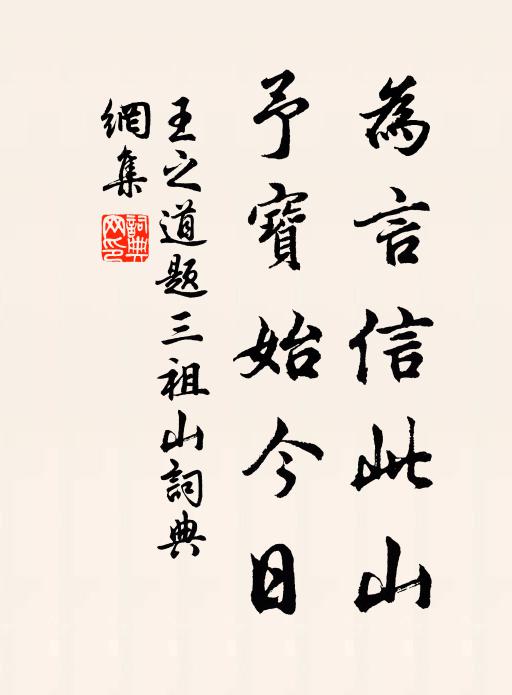 為言信此山
予寶始今日
王之道題三祖山詞典
網集
詞典
网印